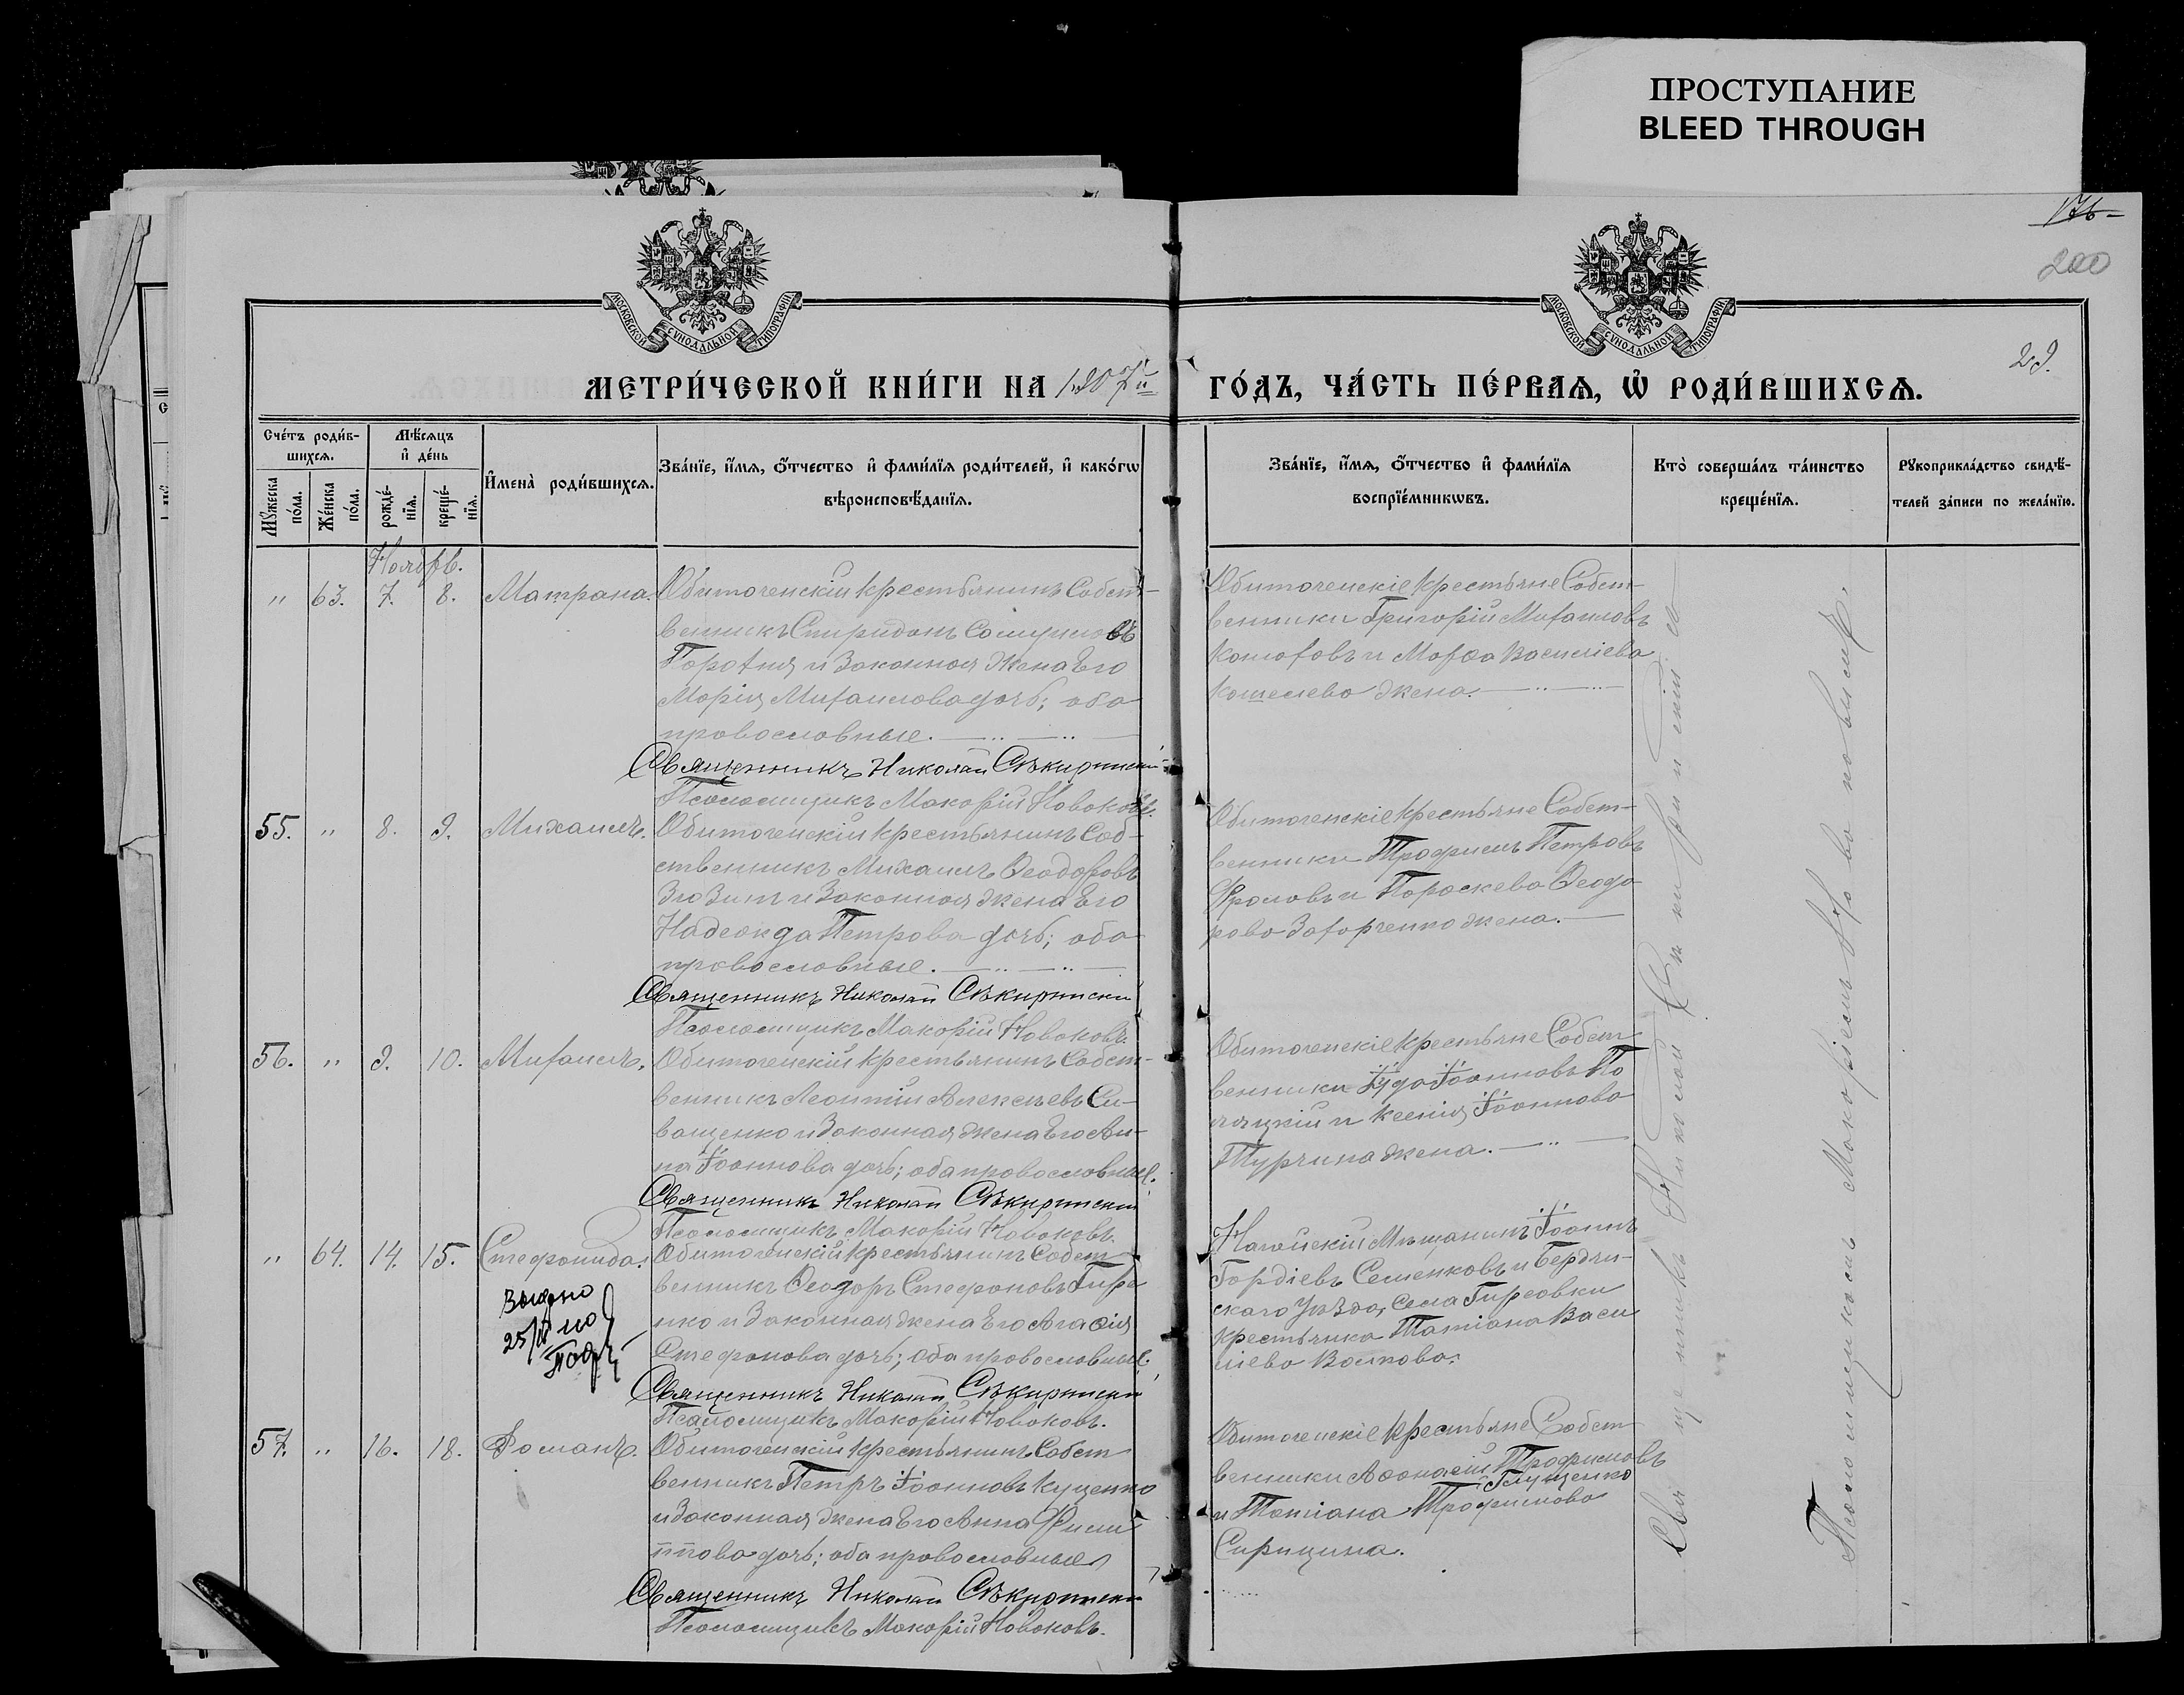 ПРОСТУПАНИЕ
BLEED THROUGH
176
200
29.
МОСКОВСКОЙ СѴНОДАЛЬНОЙ ТИПОГРАФІИ
МОСКОВСКОЙ СѴНОДАЛЬНОЙ ТИПОГРАФІИ
МЕТРИ́ЧЕСКОЙ КНИ́ГИ НА 1907й ГО́ДЪ, ЧА́СТЬ ПЕ́РВАѦ, Ѡ҆ РОДИ́ВШИХСѦ.
Сче́тъ роди́в-
шихсѧ.
Мѣ́сѧцъ
и҆ де́нь
Мꙋ́жеска по́ла.
Же́нска по́ла.
рожде́-
нїѧ.
креще́-
нїѧ.
И҆мена̀ роди́вшихсѧ.
Зва́нїе, и҆́мѧ, ѻ҆́тчество и҆ фами́лїѧ роди́телей, и҆ како́гѡ
вѣроисповѣ́данїѧ.
Зва́нїе, и҆́мѧ, ѻ҆́тчество и҆ фами́лїѧ
воспрїе́мникѡвъ.
Кто̀ соверша́лъ та́инство
креще́нїѧ.
Рꙋкоприкла́дство свидѣ́-
телей за́писи по жела́нїю.
Ноябрь.
" 63. 7. 8. Матрана. Обиточенскій крестьянинъ Собст-
венникъ Спиридонъ
и законная жена Его
Марія Михаилова дочь; оба
православные.
Священникъ Николай Сѣкиринскій
Псаломщикъ Макарій Новаковъ.
Обиточенскіе крестьяне Собст-
венники Григорій Михаиловъ
и Марѳа Василіева
Кошелева жена.
55. " 8. 9. Михаилъ. Обиточенскій крестьянинъ Соб-
ственникъ Михаилъ Ѳеодоровъ
и законная жена Его
Надежда Петрова дочь; оба
православные.
Священникъ Николай Сѣкиринскій
Псаломщикъ Макарій Новаковъ.
Обиточенскіе крестьяне Собст-
венники Трофимъ Петровъ
Фроловъ и Параскева Ѳеодо
рова Захарченко жена.
56. " 9. 10. Михаилъ. Обиточенскій крестьянинъ Собст-
венникъ Леонтій Алексѣевъ Си-
ващенко и законная жена Его Ан-
на Іоаннова дочь; оба православные.
Священникъ Николай Сѣкиринскій
Псаломщикъ Макарій Новаковъ.
Обиточенскіе крестьяне Собст
венники Іуда Іоанновъ По
ляцкій и Ксенія Іоаннова
Турчина жена.
" 64. 14. 15. Стефанида. Обиточенскій крестьянинъ Собст
венникъ Ѳеодоръ Стефановъ Гире
нко и законная жена Его Агаѳія
Стефанова дочь; оба православные.
Священникъ Николай Сѣкиринскій
Псаломщикъ Макарій Новаковъ.
Ногайскій Мѣщанинъ Іоаннъ
Гордіевъ Семенковъ и Бердян-
скаго Уѣзда, Села Гирсовки
крестьянка Татіана Васи
ліева Волкова.
57. " 16. 18. Романъ. Обиточенскій крестьянинъ Собст
венникъ Петръ Іоанновъ Куценко
и законная жена Его Анна Фили
ппова дочь; оба православные
Священникъ Николай Сѣкиринскій
Псаломщикъ Макарій Новаковъ.
Обиточенскіе крестьяне Собст
венники Аѳанасій Трофимовъ
Глущенко
и Татіана Трофимова
Сирицина.
Священникъ Николай Сѣкиринскій съ
Псаломщикомъ Макаріемъ